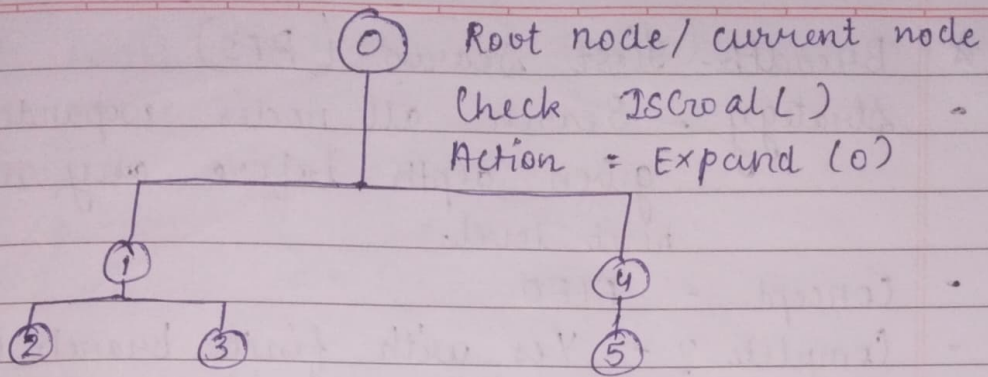 0 Root node/ current node
Check ISGoal ( )
Action = Expand (0)
1 4
2 3 5